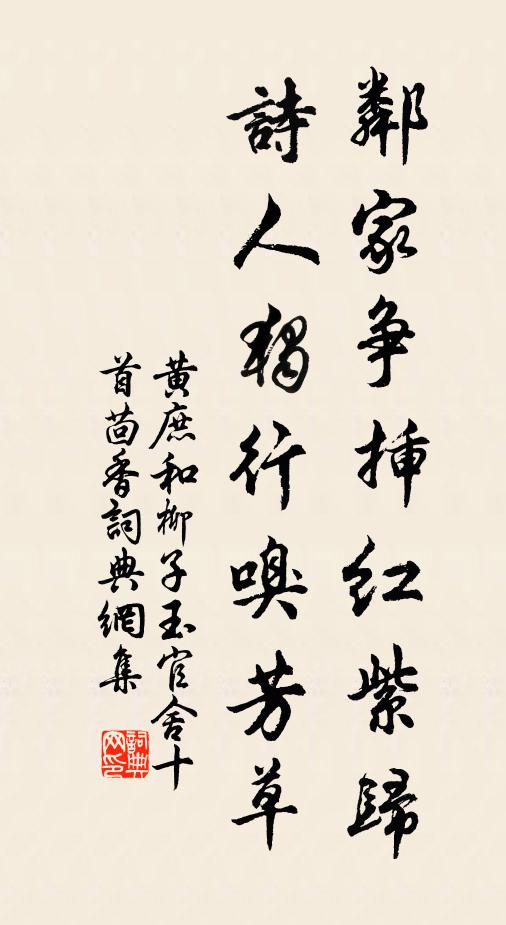 鄰家爭挿紅紫歸
詩人獨行嗅芳草
黃庶和柳子玉官舍十
首茴香詞典網集
詞典網印